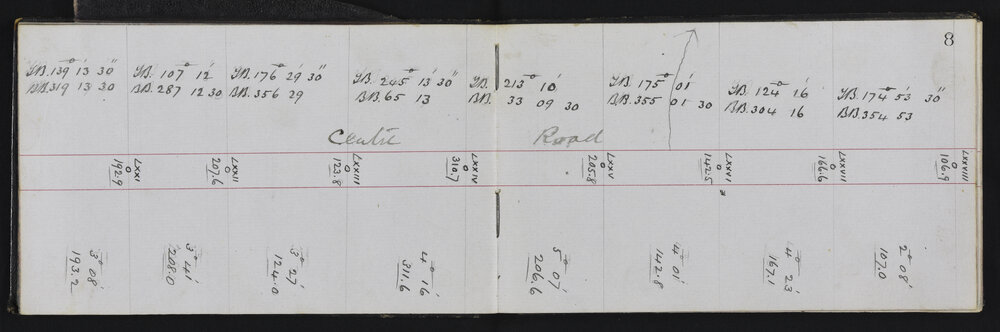 8
F.B. 139° 13' 30"
B.B. 319 13 30
F.B. 107° 12'
B.B. 287 12 30
F.B. 176° 29' 30"
B.B. 356 29
F.B. 245° 13' 30"
B.B. 65 13
F.B. 213° 10'
B.B. 33 09 30
F.B. 175° 01'
B.B. 355 01 30
F.B. 124° 16'
B.B. 304 16
F.B. 174° 53' 30"
B.B. 354 53
Centre Road
LXXI
0
192.9
LXXII
0
207.6
LXXIII
0
123.8
LXXIV
0
310.7
LXXV
0
205.8
LXXVI
0
142.5
LXXVII
0
166.6
LXXVIII
0
106.9
3° 08'
193.2
3° 41'
208.0
3° 27'
124.0
4° 16'
311.6
5° 07'
206.6
4° 01'
142.8
4° 23'
167.1
2° 08'
107.0